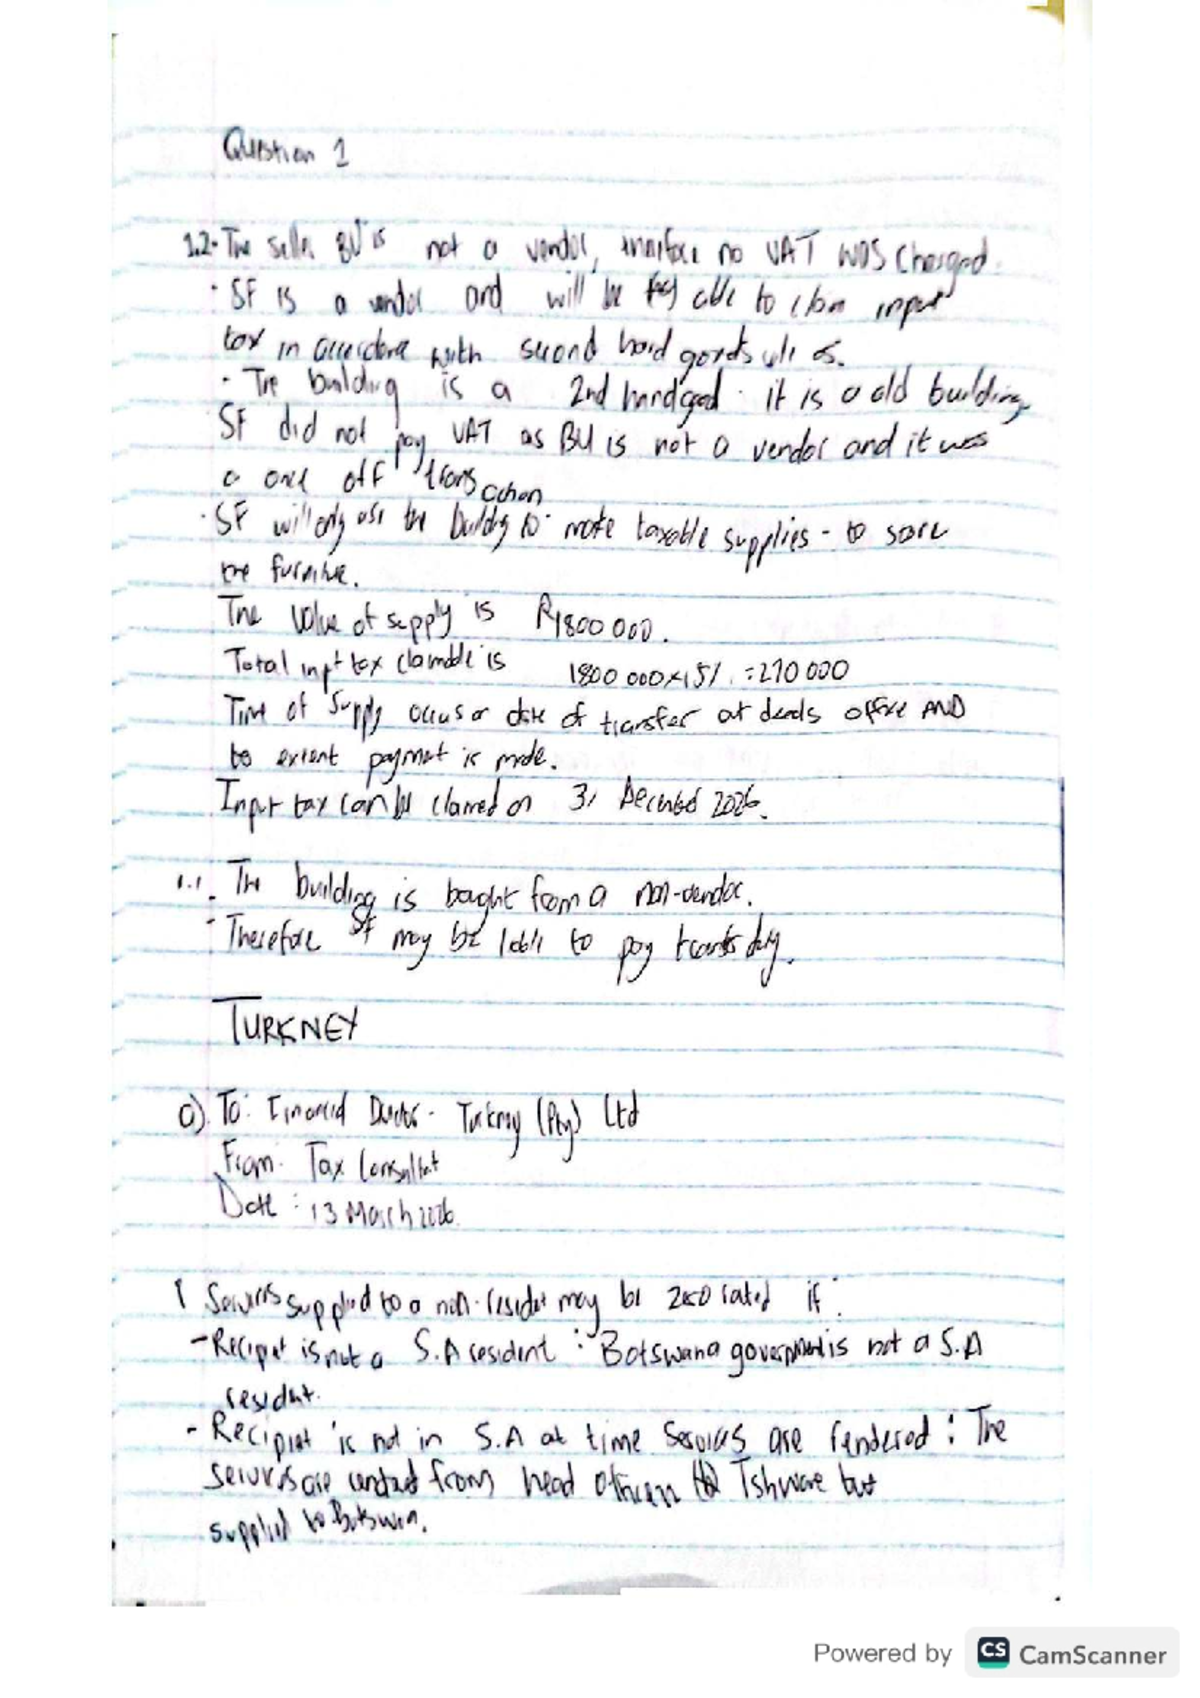 Question 1
1.2. The seller BU is not a vendor, therefore no VAT was charged.
· SF is a vendor and will be able to claim input
tax in accordance with second hand goods
· The building is a 2nd hand good · it is a old building
SF did not pay VAT as BU is not a vendor and it was
a once off transaction
· SF will only use the building to make taxable supplies - to store
the furniture.
The value of supply is R1800 000.
Total input tax claimable is 1800 000 x 15% = 270 000
Time of supply occurs on date of transfer at deeds office AND
to extent payment is made.
Input tax can be claimed on 31 December 2026.
1.1. The building is bought from a non-vendor.
- Therefore SF may be liable to pay transfer duty.
TURKNEY
a) To: Financial Director - Turkney (Pty) Ltd
From: Tax Consultant
Date : 13 March 2026.
1 Services supplied to a non-resident may be zero rated if :
- Recipient is not a S.A resident : Botswana government is not a S.A
resident.
- Recipient is not in S.A at time services are rendered : The
services are conducted from head office in Tshwane but
supplied to Botswana.
Powered by CS CamScanner